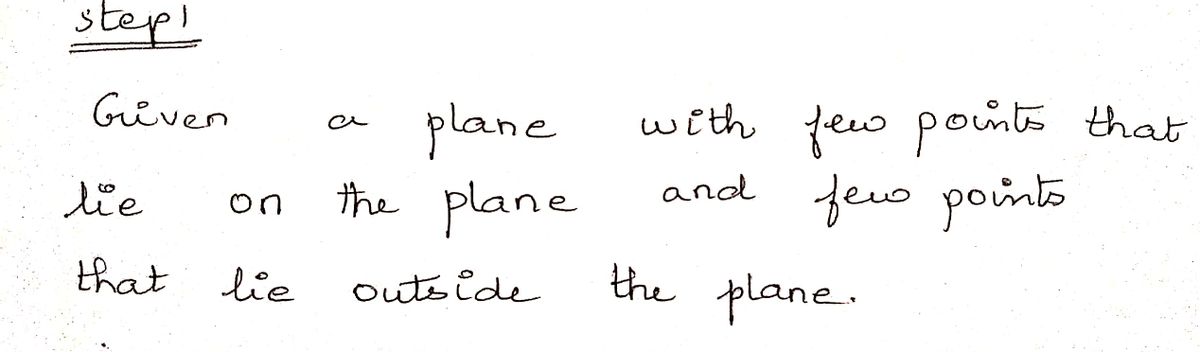 step1
Given a plane with few points that
lie on the plane and few points
that lie outside the plane.